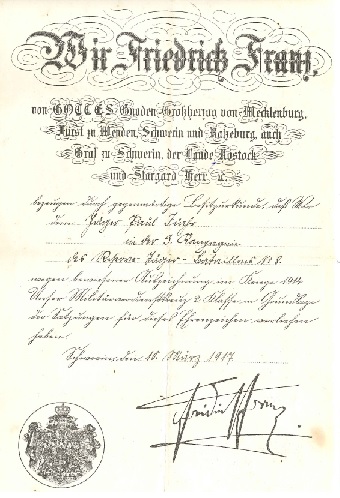 Wir Friedrich Franz,
von GOTTES Gnaden Großherzog von Mecklenburg,
Fürst zu Wenden, Schwerin und Ratzeburg, auch
Graf zu Schwerin, der Lande Rostock
und Stargard Herr etc.
bezeugen durch gegenwärtige Besitzurkunde, daß Wir
dem Jäger Paul
in der 3. Kompagnie
des Reserve Jäger-Bataillons No 8.
wegen bewiesener Auszeichnung im Kriege 1914
Unser Militärverdienstkreuz 2. Klasse in Grundlage
der Satzungen für dieses Ehrenzeichen verliehen
haben.
Schwerin, den 18. März 1917.
Friedrich Franz.